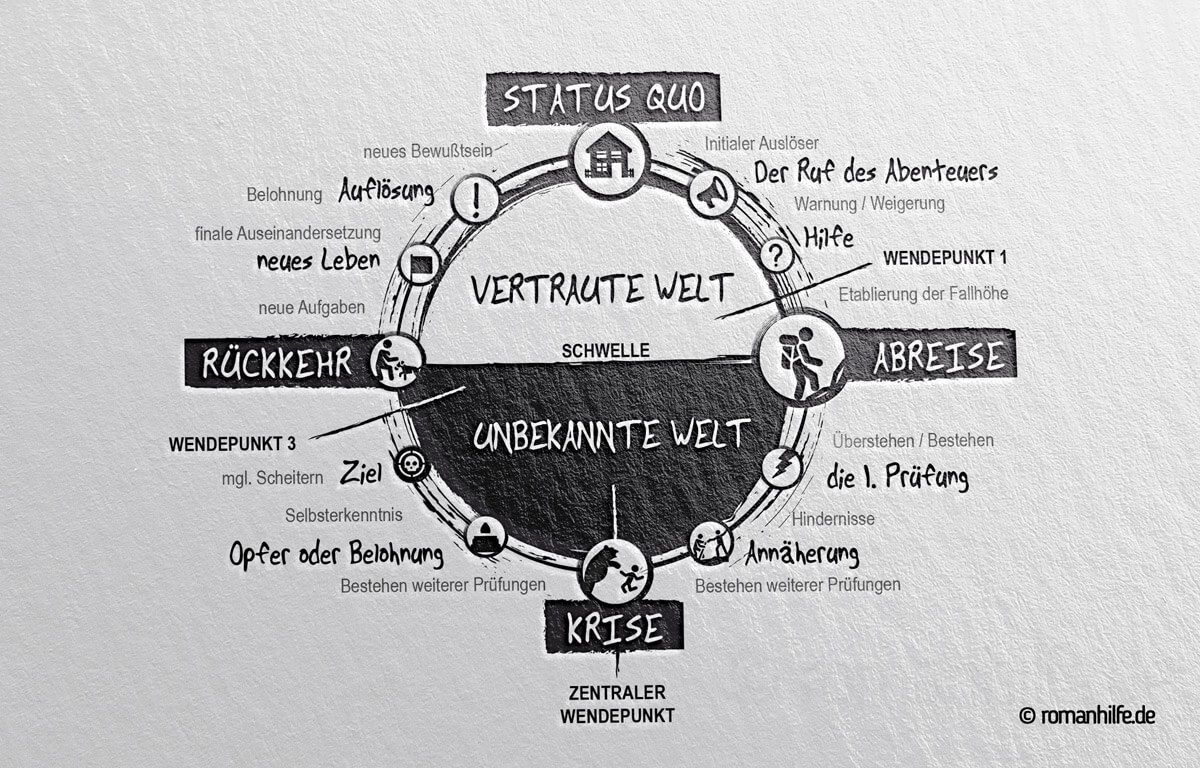 STATUS QUO
neues Bewußtsein
Initialer Auslöser
Der Ruf des Abenteuers
Belohnung Auflösung
Warnung / Weigerung
finale Auseinandersetzung
Hilfe
neues Leben
WENDEPUNKT 1
VERTRAUTE WELT
Etablierung der Fallhöhe
neue Aufgaben
SCHWELLE
RÜCKKEHR
ABREISE
UNBEKANNTE WELT
WENDEPUNKT 3
Überstehen / Bestehen
mgl. Scheitern Ziel
die 1. Prüfung
Selbsterkenntnis
Hindernisse
Opfer oder Belohnung
Annäherung
Bestehen weiterer Prüfungen
Bestehen weiterer Prüfungen
KRISE
ZENTRALER
WENDEPUNKT
© romanhilfe.de